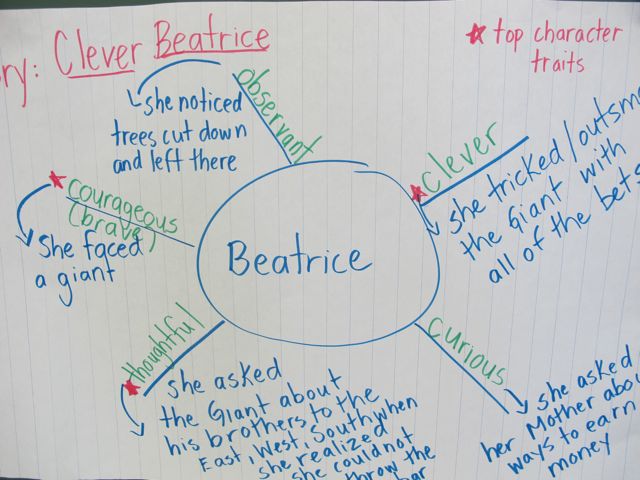 ry: Clever Beatrice
★ top character
traits
observant
she noticed
trees cut down
and left there
★ clever
she tricked/outsm
the Giant with
all of the bets
★ courageous
(brave)
She faced
a giant
Beatrice
★ thoughtful
she asked
the Giant about
his brothers to the
East, West, South when
she realized
she could not
throw the
bar
curious
she asked
her Mother abou
ways to earn
money